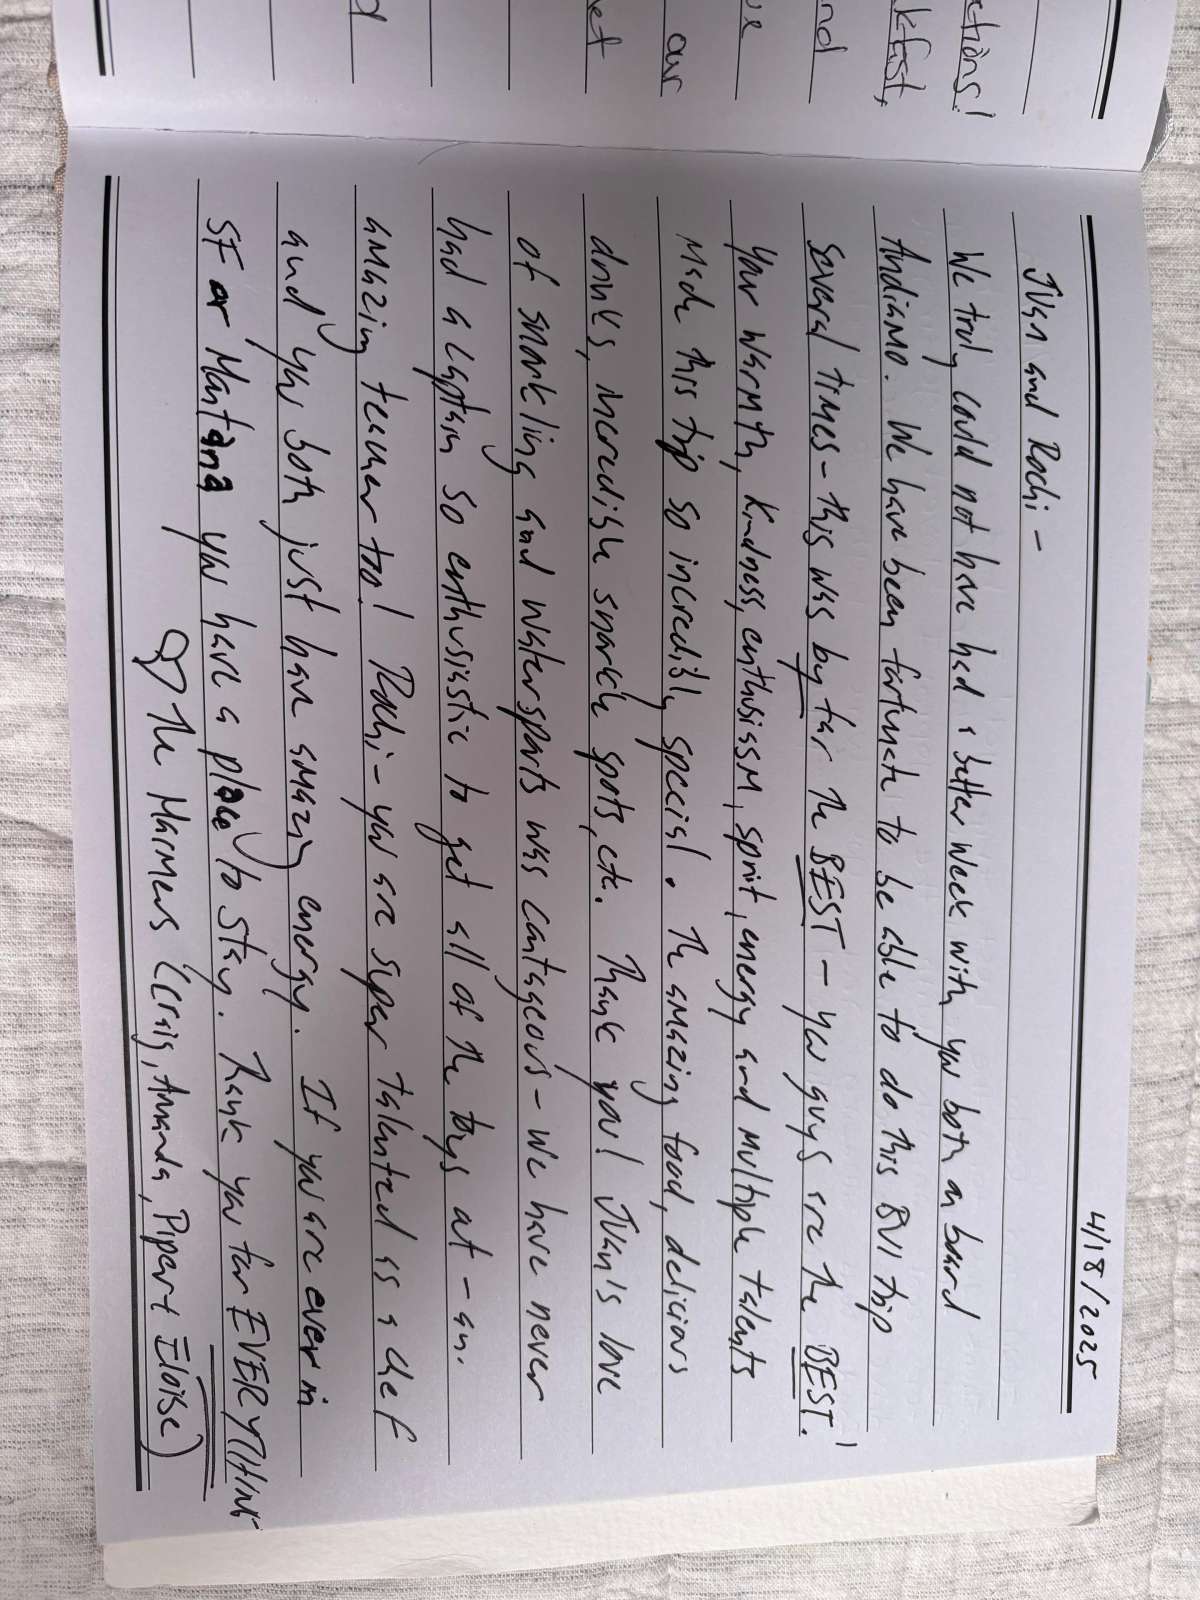 ctions!
kfast,
nd
ue
our
et
d
4/18/2025
Juan and Rochi -
We truly could not have had a better week with you both on board
Andiamo. We have been fortunate to be able to do this BVI trip
several times - this was by far the BEST - you guys are the BEST!
Your warmth, kindness, enthusiasm, spirit, energy and multiple talents
made this trip so incredibly special. The amazing food, delicious
drinks, incredible snorkel spots, etc. Thank you! Juan's love
of snorkling and watersports was contageous - we have never
had a captain so enthusiastic to get all of the toys out - an
amazing teacher too! Rochi - you are super talented as a chef
and you both just have amazing energy. If you are ever in
SF or Montana you have a place to stay. Thank you for EVERYTHING
The (Craig, Amanda, Piper + Eloise)